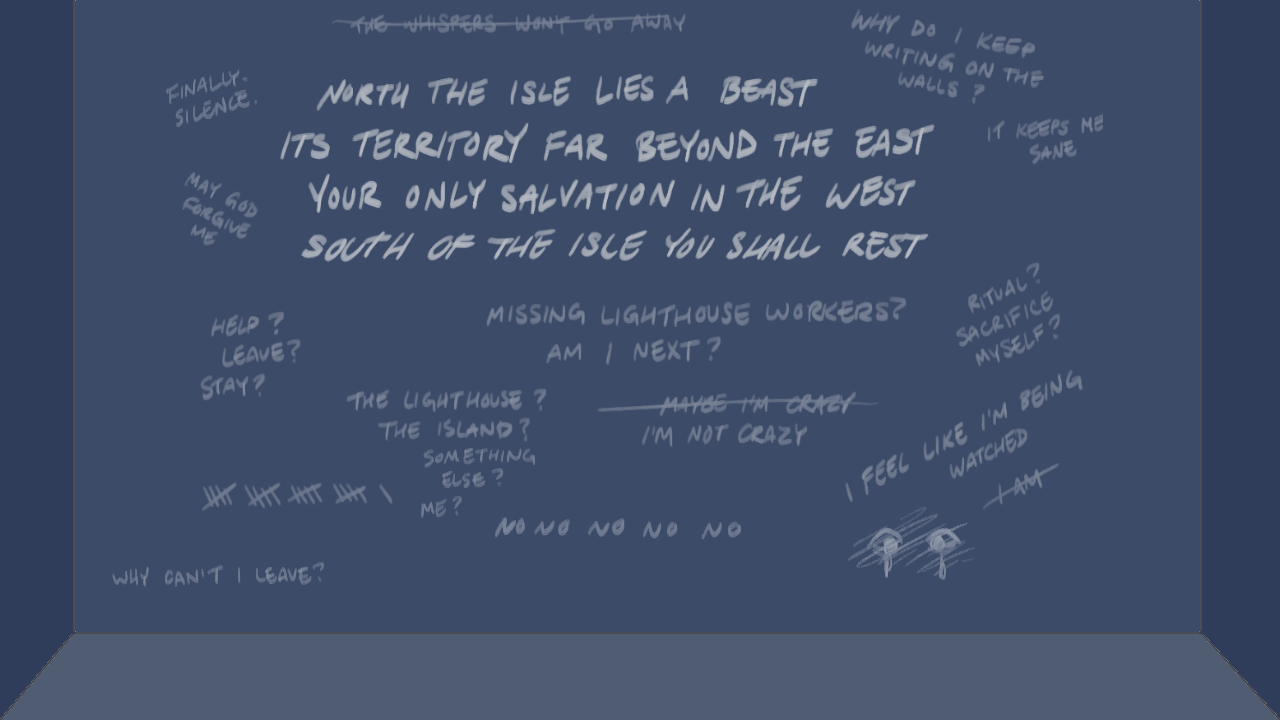 THE WHISPERS WON'T GO AWAY
WHY DO I KEEP
WRITING ON THE
WALLS?
FINALLY.
SILENCE.
NORTH THE ISLE LIES A BEAST
ITS TERRITORY FAR BEYOND THE EAST
YOUR ONLY SALVATION IN THE WEST
SOUTH OF THE ISLE YOU SHALL REST
IT KEEPS ME
SANE
MAY GOD
FORGIVE
ME
HELP?
LEAVE?
STAY?
MISSING LIGHTHOUSE WORKERS?
AM I NEXT?
RITUAL?
SACRIFICE
MYSELF?
THE LIGHTHOUSE?
THE ISLAND?
SOMETHING
ELSE?
ME?
MAYBE I'M CRAZY
I'M NOT CRAZY
I FEEL LIKE I'M BEING
WATCHED
I AM
NO NO NO NO NO
WHY CAN'T I LEAVE?